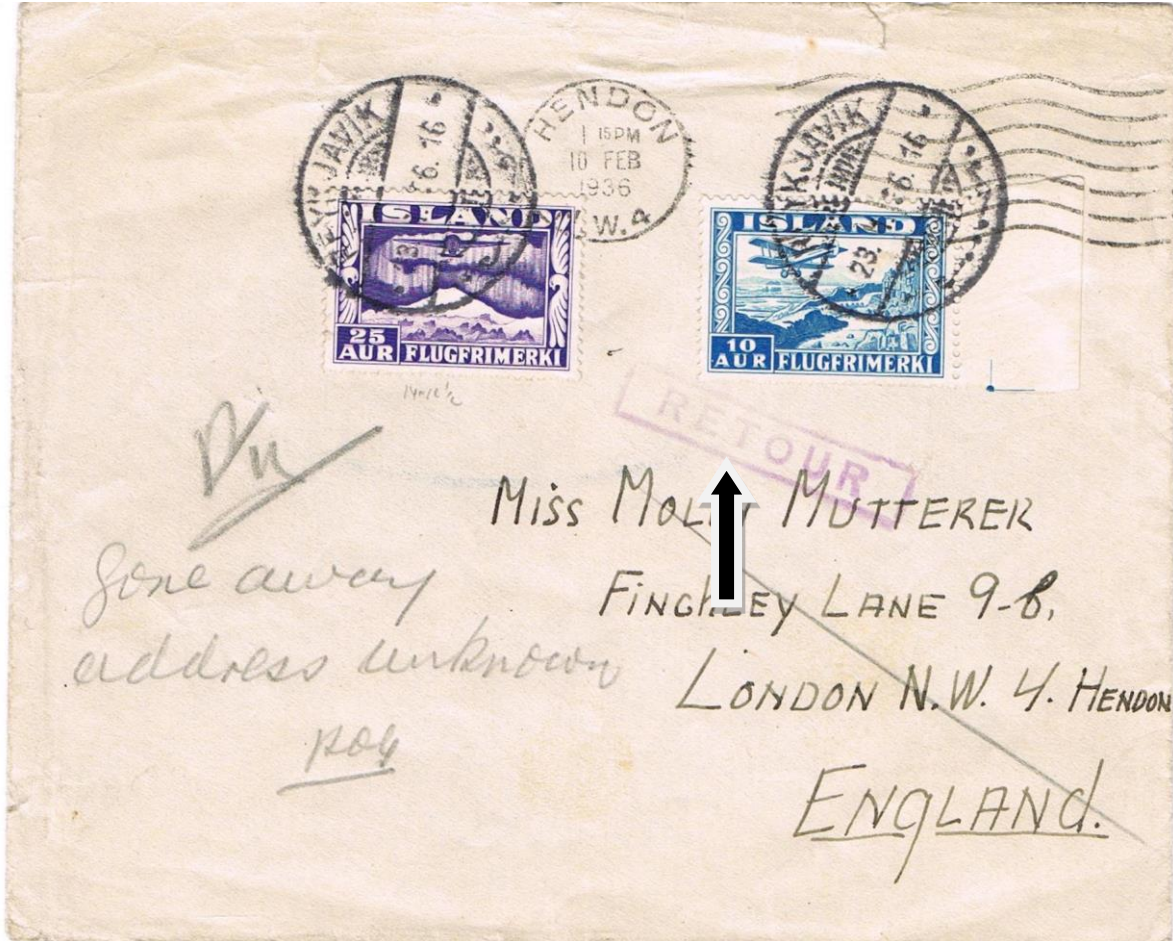 REYKJAVIK
HENDON
1 15PM
10 FEB
1936
N.W.4
REYKJAVIK
ISLAND
25
AUR FLUGFRIMERKI
ISLAND
10
AUR FLUGFRIMERKI
RETOUR
MISS MOLLY MUTTERER
FINCHLEY LANE 9-8,
LONDON N.W. 4. HENDON
ENGLAND.
Gone away
address unknown